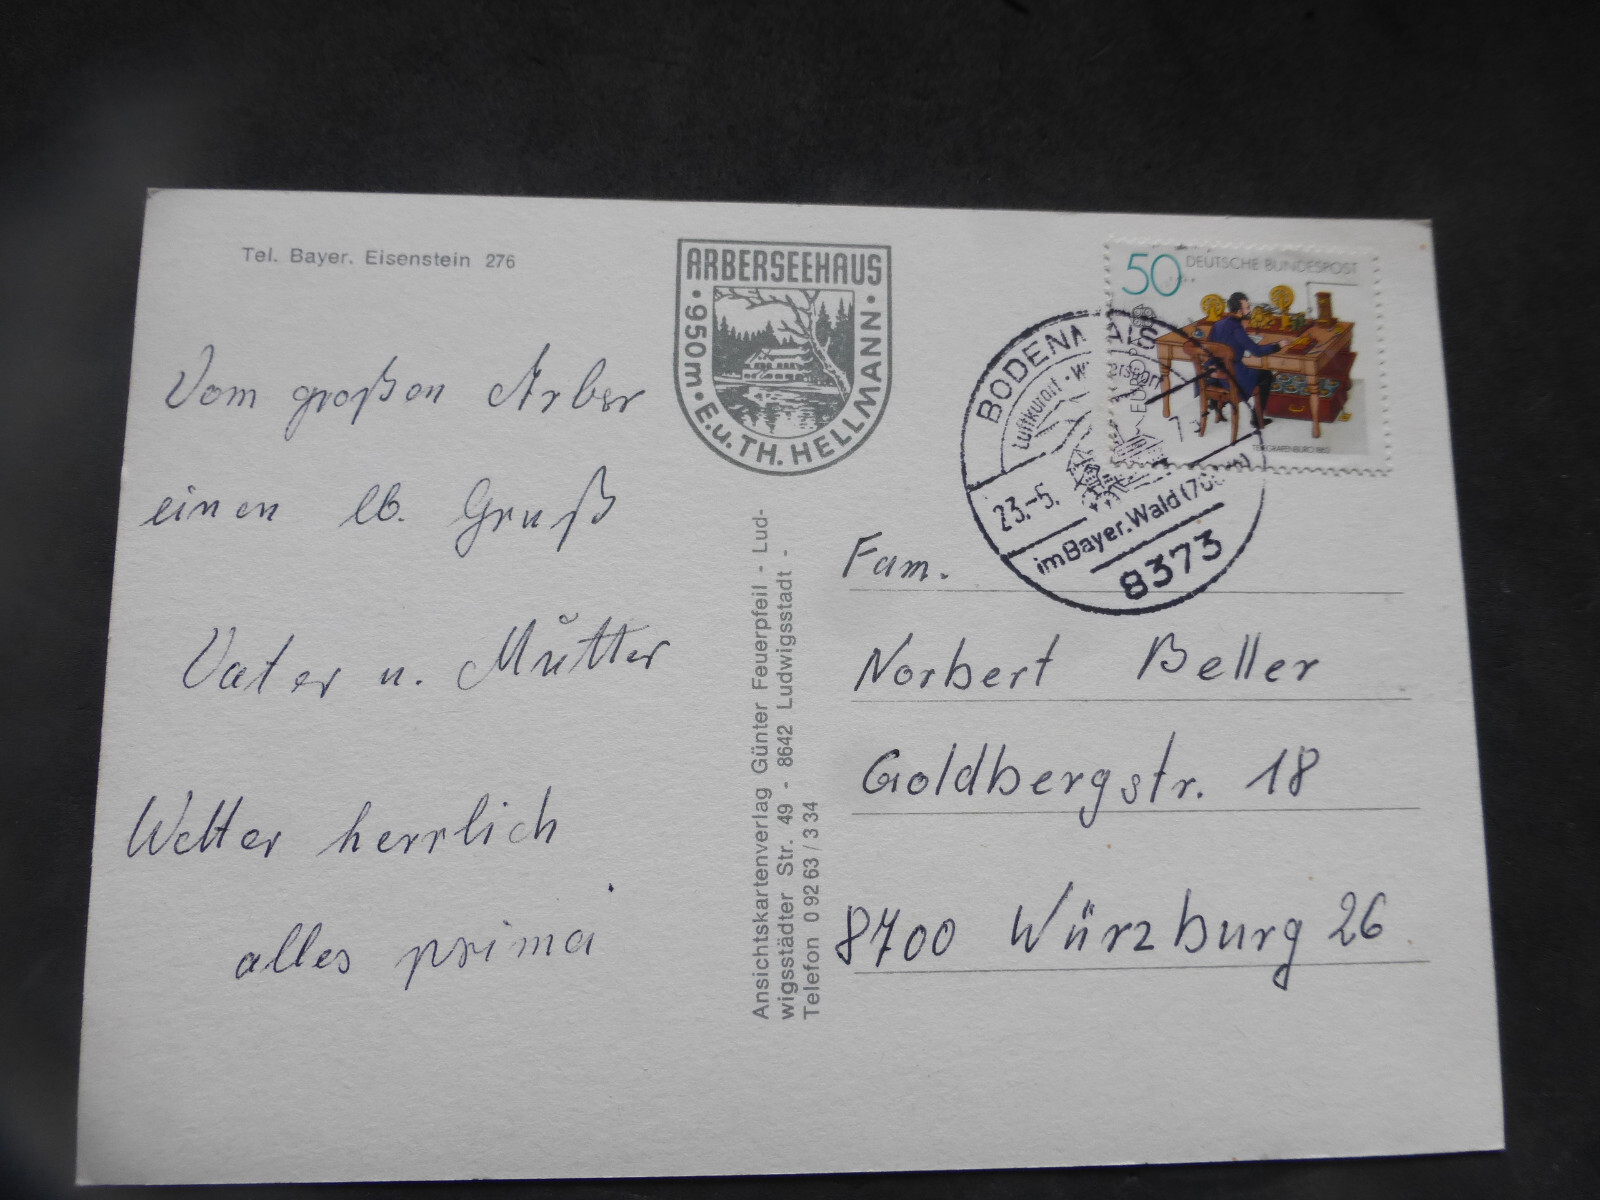 Tel. Bayer. Eisenstein 276
Vom großen Arber
einen lb. Gruß
Vater u. Mutter
Wetter herrlich
alles prima
ARBERSEEHAUS
· 950m · E. u. TH. HELLMANN ·
Ansichtskartenverlag Günter Feuerpfeil - Lud-
wigsstädter Str. 49 - 8642 Ludwigsstadt -
Telefon 0 92 63 / 3 34
50 DEUTSCHE BUNDESPOST
EUROPA
BODENMAIS
Luftkurort
23.-5.
im Bayer. Wald
8373
Fam.
Norbert Beller
Goldbergstr. 18
8700 Würzburg 26